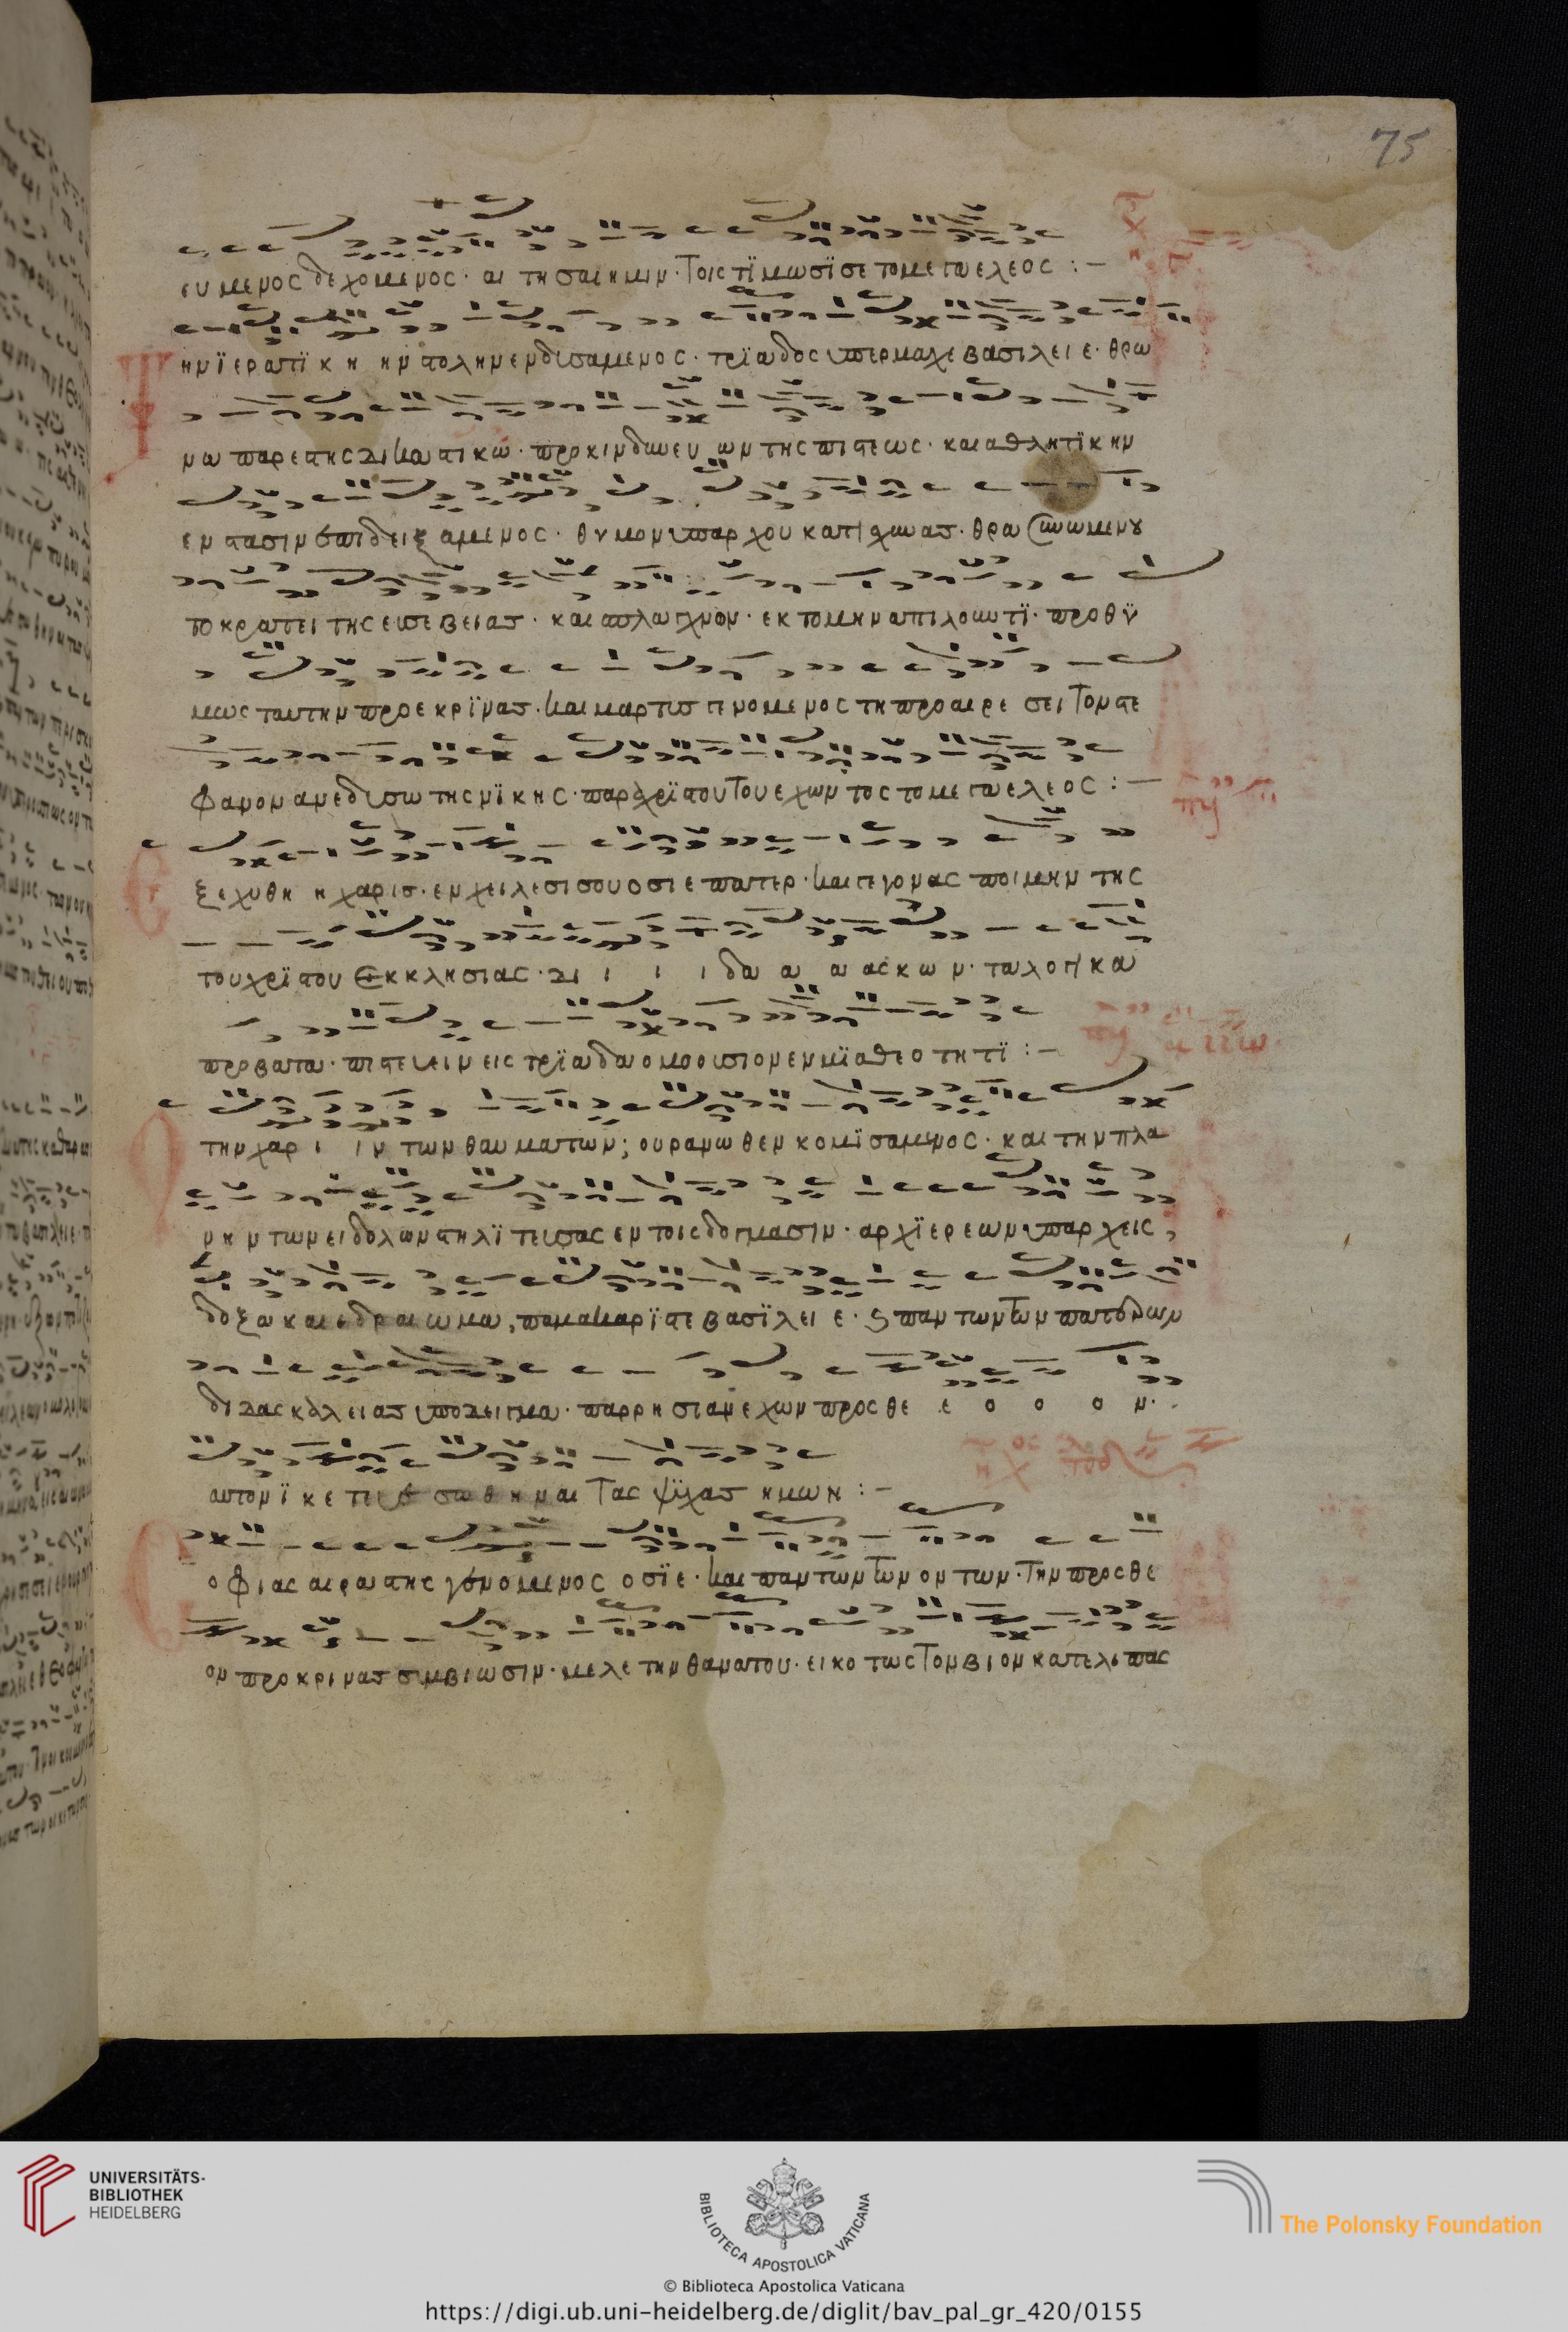 75
ευμενος δεχομενος · αι τησαι ημιν · Τοις τϊμωσϊ σε το μεγα ελεος : –
Τ ην ϊερατϊκην στολην ενδυσαμενος · τρϊαδος υπερμαχε βασιλειε ·
παρεστης δικαστικω · προκινδυνευων της πιστεως · και αθλητϊκην
ενστασιν επιδειξαμενος · θυμον υπαρχου κατησχυνας ·
το κρατει της ευσεβειας · και σπλαγχνων · εκτομην απειλουντϊ · προθϋ
μως ταυτην προεκρϊνας · και μαρτυς γενομενος τη προαιρεσει Τον στε
φανον ανεδησω της νϊκης · παρα χρϊστου Του εχοντος το μεγα ελεος : –
Ε ξεχυθη η χαρις · εν χειλεσι σου οσιε πατερ · και γεγονας ποιμην της
του χρϊστου Εκκλησιας · δι ι ι ι δα α α ασκων · τα λογικα
προβατα · πιστευειν εις τρϊαδα ομοουσιον εν μϊα θεοτητϊ : –
Ο την χαρ ι ιν των θαυματων ; ουρανωθεν κομϊσαμενος · και την πλα
νην των ειδολων στηλϊτευσας εν τοις δογμασιν · αρχϊερεων υπαρχεις ,
δοξα και εδραιωμα , παμμακαρϊστε βασϊλειε · παντων των πατερων
διδασκαλειας υποδειγμα · παρρησιαν εχων προς θε ε ο ο ο ν ·
αυτον ϊκετευε σωθηναι Τας ψϋχας ημων : –
C οφιας αιραστης γενομενος οσϊε · και παντων των οντων · Την προς θε
ον προκρινας συμβιωσιν · μελετην θανατου · εικοτως Τον βιον κατελιπας
UNIVERSITÄTS-
BIBLIOTHEK
HEIDELBERG
BIBLIOTECA APOSTOLICA VATICANA
The Polonsky Foundation
© Biblioteca Apostolica Vaticana
https://digi.ub.uni-heidelberg.de/diglit/bav_pal_gr_420/0155